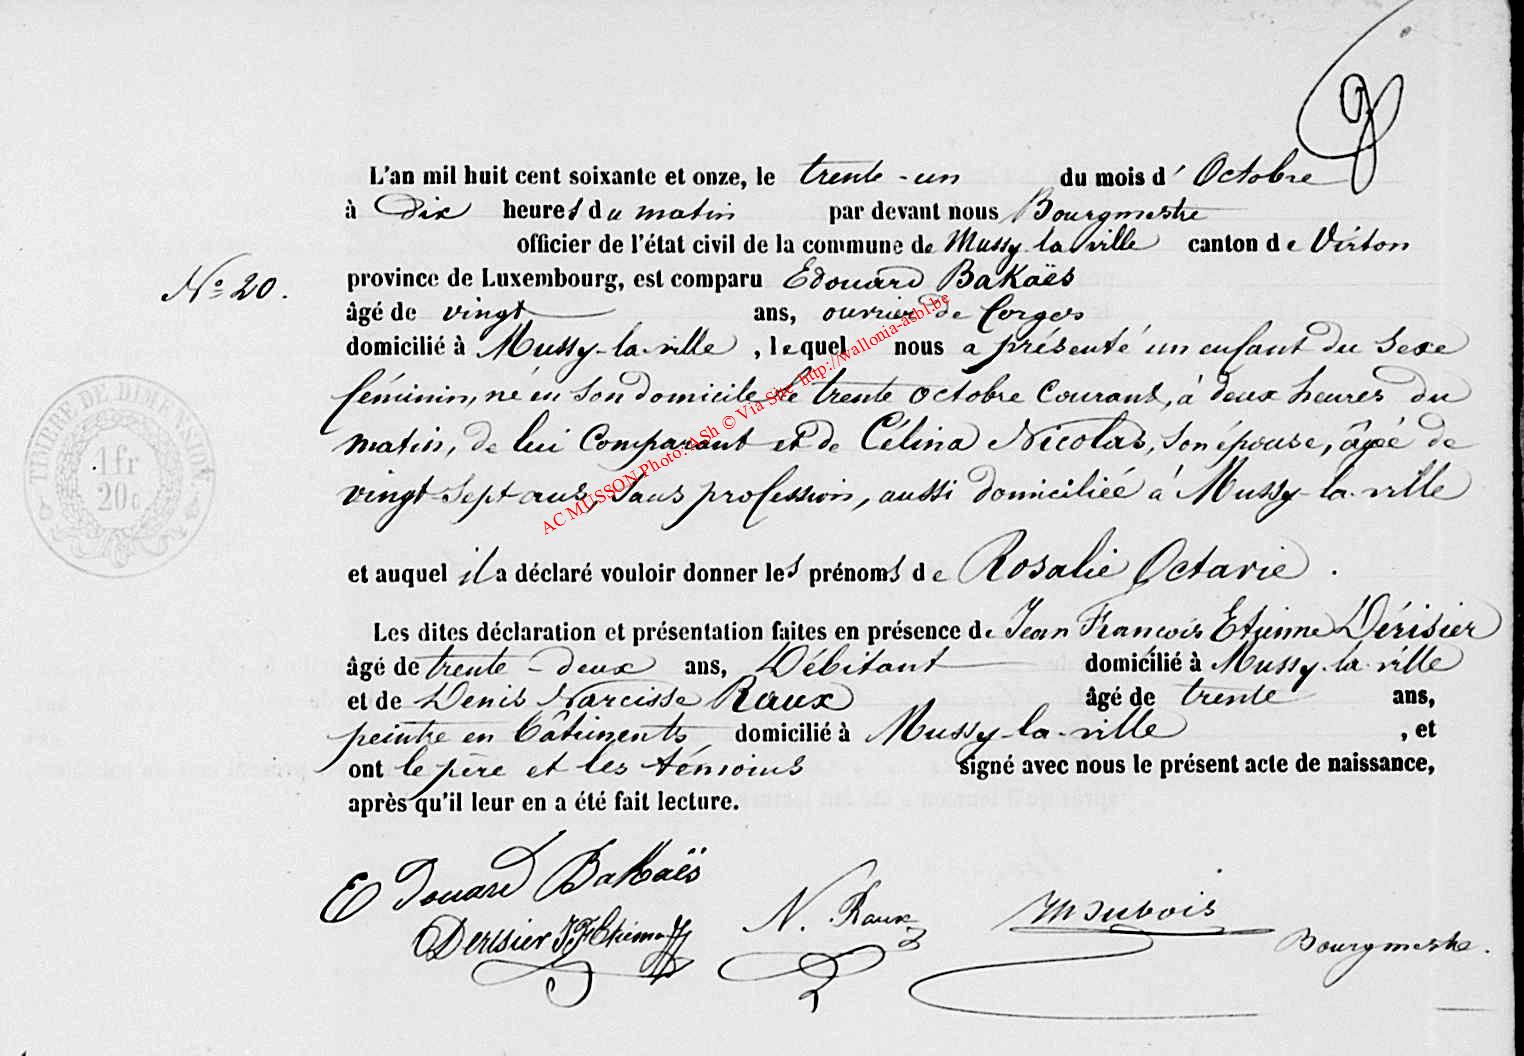 L'an mil huit cent soixante et onze, le trente-un du mois d'Octobre
à dix heures du matin par devant nous Bourgmestre
officier de l'état civil de la commune de Mussy-la-ville canton de Virton
N° 20. province de Luxembourg, est comparu Edouard Bakaës
âgé de vingt ans, ouvrier de forges
domicilié à Mussy-la-ville, lequel nous a présenté un enfant du sexe
féminin, né en son domicile le trente octobre courant, à deux heures du
matin, de lui comparant et de Célina Nicolas, son épouse, âgé de
vingt sept ans, sans profession, aussi domiciliée à Mussy-la-ville
et auquel il a déclaré vouloir donner les prénoms de Rosalie Octavie.
Les dites déclaration et présentation faites en présence de Jean François Etienne Dérisier
âgé de trente-deux ans, Débitant domicilié à Mussy-la-ville
et de Denis Narcisse Raux âgé de trente ans,
peintre en bâtiments domicilié à Mussy-la-ville, et
ont le père et les témoins signé avec nous le présent acte de naissance,
après qu'il leur en a été fait lecture.
Edouard Bakaës
Derisier JF Etienne N. Raux Dubois
Bourgmestre.
TIMBRE DE DIMENSION
1 fr
20c
AC MUSSON Photo: ASh © Via Site http://wallonia-asbl.be